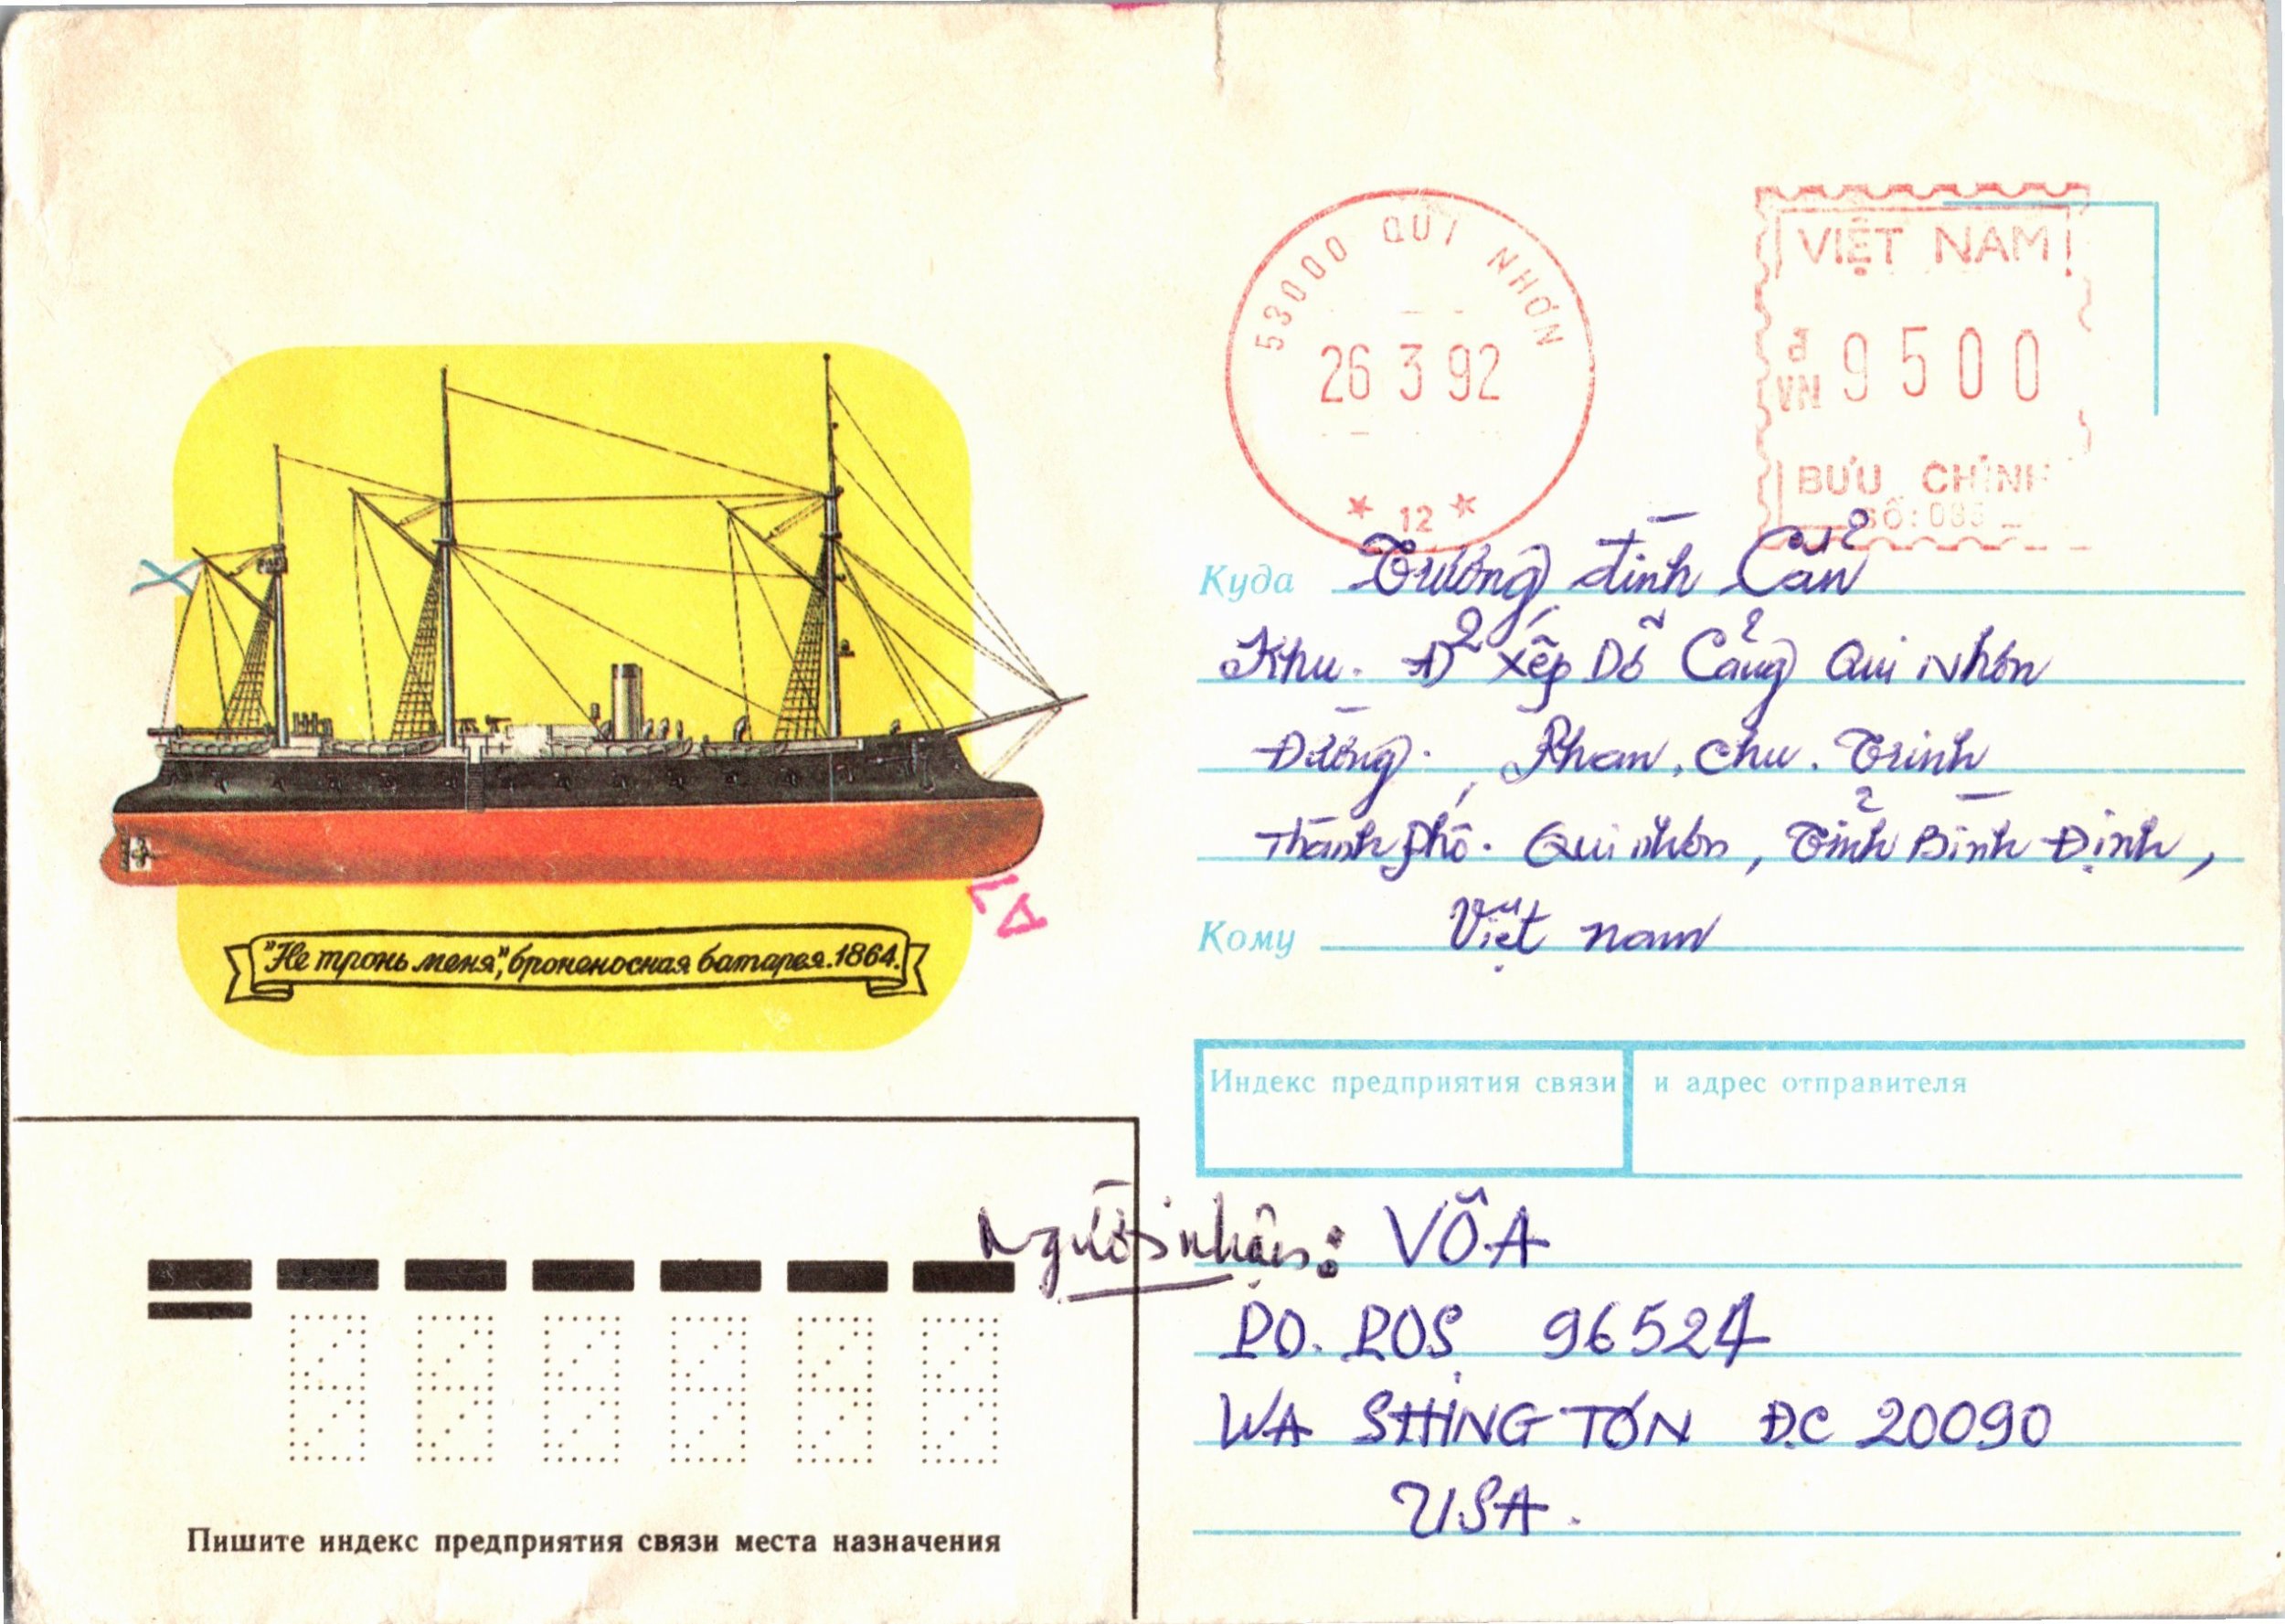 53000 QUI NHƠN
26 3 92
* 12 *
VIỆT NAM
đ VN 9500
BƯU CHÍNH
SỐ:
"Не тронь меня", броненосная батарея. 1864.
Куда Trương đình Cẩn
Khu. Xếp Dỡ Cảng Qui Nhơn
Đường. Phan. Chu. Trinh
Thành phố. Qui nhơn, Tỉnh Bình Định,
Кому Việt nam
Индекс предприятия связи и адрес отправителя
Người nhận: VÕA
PO. POS 96524
WA SHING TÓN Đ.C 20090
USA.
Пишите индекс предприятия связи места назначения